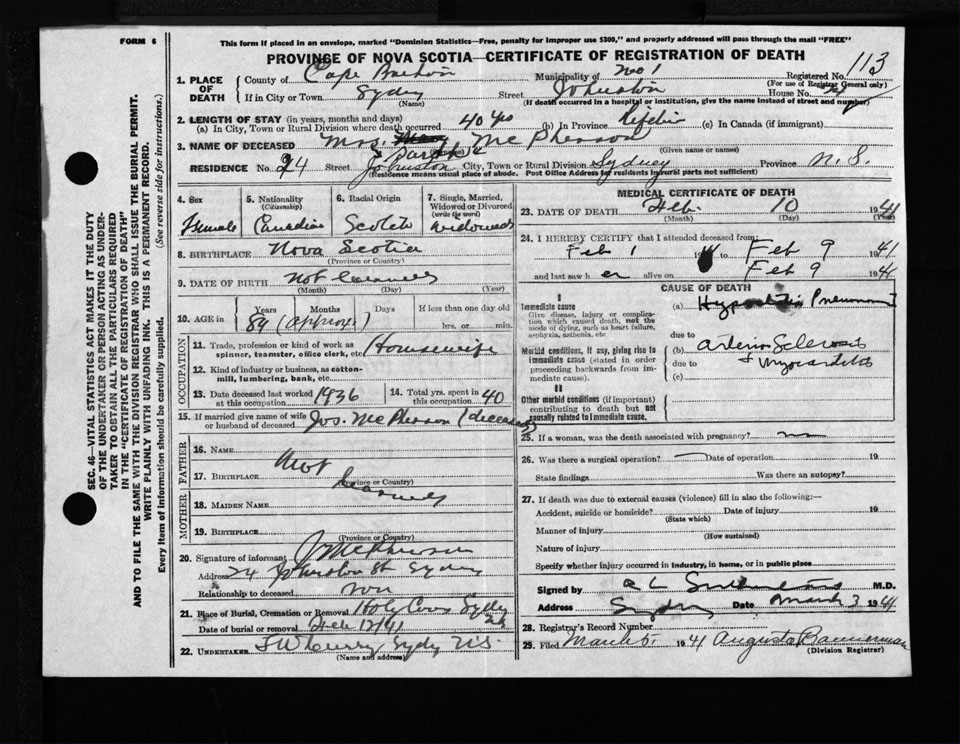 FORM 6
This form if placed in an envelope, marked "Dominion Statistics—Free, penalty for improper use $300," and properly addressed will pass through the mail "FREE"
PROVINCE OF NOVA SCOTIA—CERTIFICATE OF REGISTRATION OF DEATH
1. PLACE OF DEATH County of Cape Breton Municipality of No 1 Registered No. 113
(For use of Registrar General only)
If in City or Town Sydney Street Johnston House No.
(Name) (If death occurred in a hospital or institution, give the name instead of street and number)
2. LENGTH OF STAY (in years, months and days)
(a) In City, Town or Rural Division where death occurred 40 yrs (b) In Province Lifetime (c) In Canada (if immigrant)
3. NAME OF DECEASED Mrs. McPherson
(Given name or names)
RESIDENCE No. 24 Street Johnston City, Town or Rural Division Sydney Province N.S.
(Residence means usual place of abode. Post Office Address for residents in rural parts not sufficient)
4. Sex Female
5. Nationality (Citizenship) Canadian
6. Racial Origin Scotch
7. Single, Married, Widowed or Divorced (write the word) Widowed
8. BIRTHPLACE Nova Scotia
(Province or Country)
9. DATE OF BIRTH Not
(Month) (Day) (Year)
10. AGE in Years Months Days If less than one day old
89 (approx.) hrs. or min.
OCCUPATION
11. Trade, profession or kind of work as spinner, teamster, office clerk, etc. Housewife
12. Kind of industry or business, as cotton-mill, lumbering, bank, etc.
13. Date deceased last worked at this occupation 1936
14. Total yrs. spent in this occupation 40
15. If married give name of wife or husband of deceased Jos. McPherson (deceased)
FATHER
16. NAME
Not
17. BIRTHPLACE
(Province or Country)
MOTHER
18. MAIDEN NAME
19. BIRTHPLACE
(Province or Country)
20. Signature of informant J McPherson
Address 24 Johnston St. Sydney
Relationship to deceased son
21. Place of Burial, Cremation or Removal Holy Cross Sydney
Date of burial or removal Feb 12/41
22. UNDERTAKER Curry Sydney N.S.
(Name and address)
MEDICAL CERTIFICATE OF DEATH
23. DATE OF DEATH Feb. 10 1941
(Month) (Day) (Year)
24. I HEREBY CERTIFY that I attended deceased from:
Feb 1 1941 to Feb 9 1941
and last saw her alive on Feb 9 1941
CAUSE OF DEATH
I
Immediate cause (a) Pneumonia
Give disease, injury or complication which caused death, not the mode of dying, such as heart failure, asphyxia, asthenia, etc
due to
Morbid conditions, if any, giving rise to immediate cause (stated in order proceeding backwards from immediate cause). (b) Arterio Sclerosis
due to + Myocarditis
(c)
II
Other morbid conditions (if important) contributing to death but not causally related to immediate cause.
25. If a woman, was the death associated with pregnancy? no
26. Was there a surgical operation? Date of operation 19
State findings Was there an autopsy?
27. If death was due to external causes (violence) fill in also the following:—
Accident, suicide or homicide? Date of injury 19
(State which)
Manner of injury
(How sustained)
Nature of injury
Specify whether injury occurred in industry, in home, or in public place
Signed by M.D.
Address Sydney Date March 3 1941
28. Registrar's Record Number
29. Filed March 5, 1941 Augusta Bannerman
(Division Registrar)
SEC. 46—VITAL STATISTICS ACT MAKES IT THE DUTY
OF THE UNDERTAKER OR PERSON ACTING AS UNDER-
TAKER TO OBTAIN ALL THE PARTICULARS REQUIRED
IN THE "CERTIFICATE OF REGISTRATION OF DEATH"
AND TO FILE THE SAME WITH THE DIVISION REGISTRAR WHO SHALL ISSUE THE BURIAL PERMIT.
WRITE PLAINLY WITH UNFADING INK. THIS IS A PERMANENT RECORD.
Every item of information should be carefully supplied. (See reverse side for instructions.)